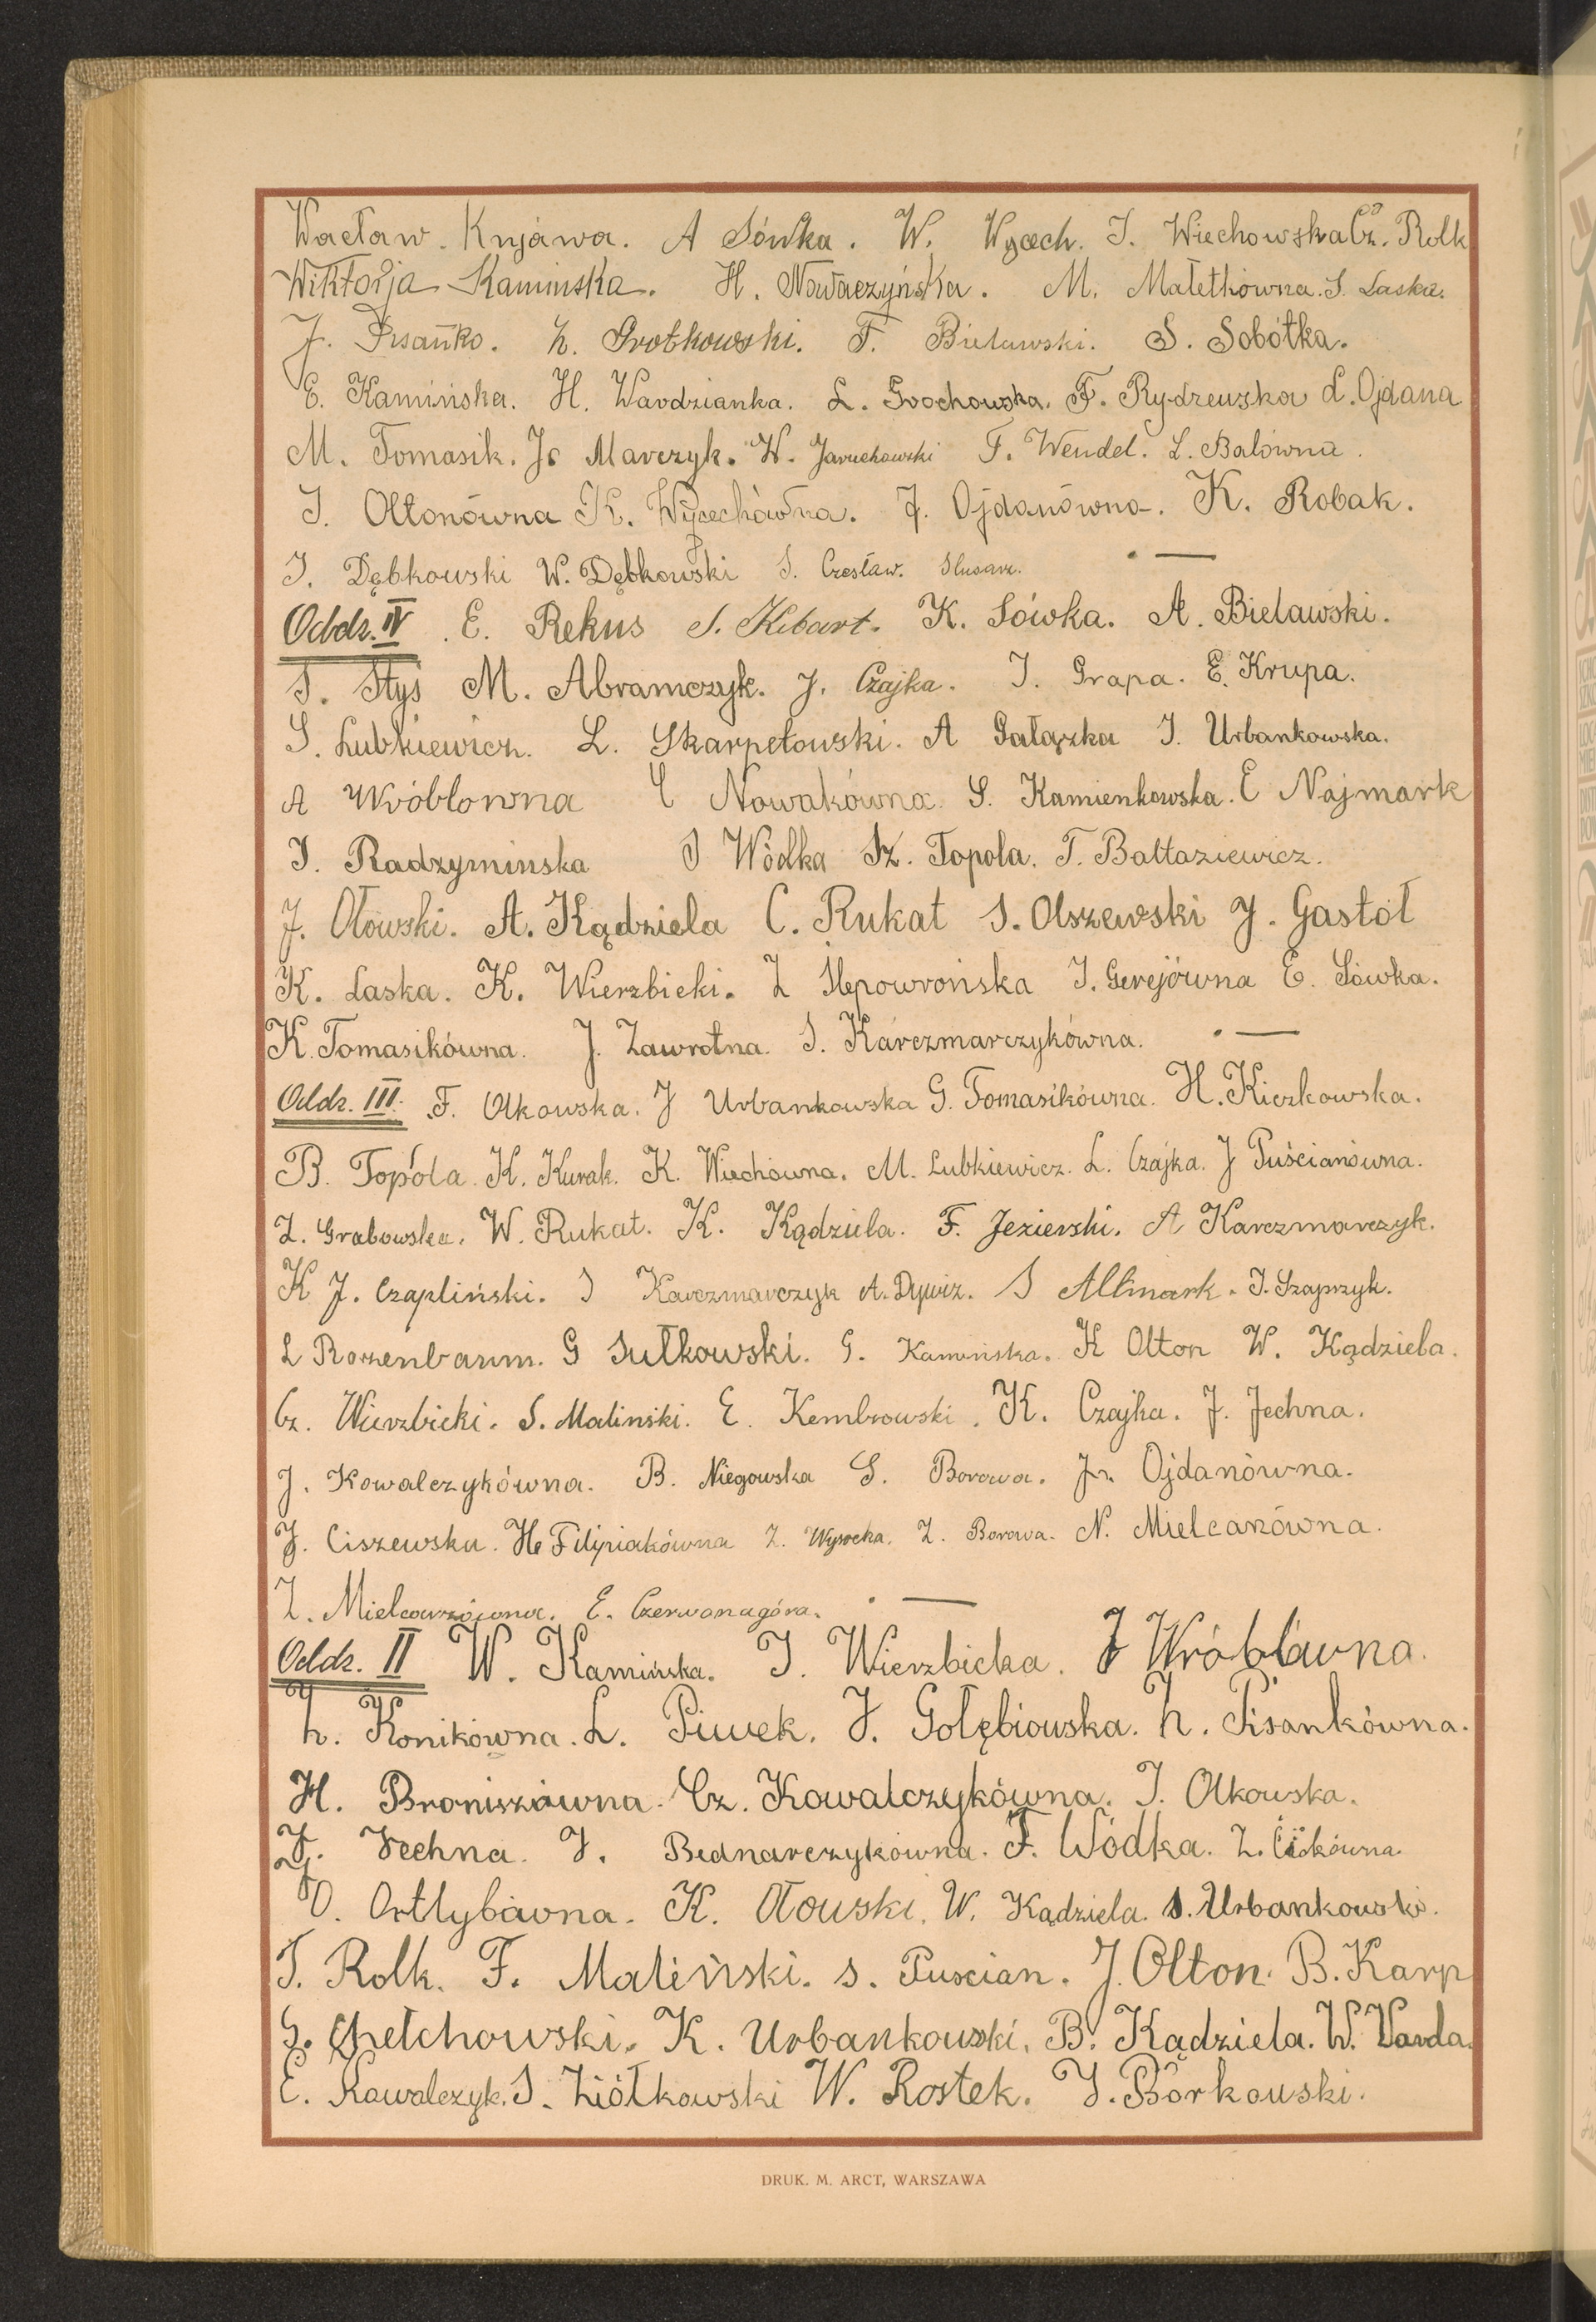 Wacław. Knjáwa. A Sówka. W. Wycech. J. Wiechowska Cz. Rolk
Wiktorja Kaminska. H. Nowaczyńska. M. Małetkówna. S. Laska.
J. Pisańko. Z. Grotkowski. F. Bielawski. S. Sobótka.
E. Kamińska. H. Wardzianka. L. Grochowska. F. Rydzewska L. Ojdana
M. Tomasik. J. Marczyk. W. Jaruchowski F. Wendel. L. Balówna.
J. Ołtonówna K. Wycechówna. J. Ojdanówna. K. Robak.
J. Dębkowski W. Dębkowski S. Czesław. Slusarz.
Oddz. IV. E. Rekus S. Kibart. K. Sówka. A. Bielawski.
S. Styś M. Abramczyk. J. Czajka. J. Grapa. E. Krupa.
S. Lubkiewicz. L. Skarpetowski. A Gałązka J. Urbankowska.
A Wróblowna C Nowakówna. S. Kamienkowska. E Najmark
J. Radzyminska S Wódka Sz. Topola. T. Baltaziewicz.
J. Ołowski. A. Kądziela C. Rukat S. Olszewski J. Gastoł
K. Laska. K. Wierzbicki. Z Ślepowrońska J. Gerejówna E. Sówka.
K. Tomasikówna. J. Zawrotna. S. Karczmarczykówna.
Oddz. III. F. Olkowska. J Urbankowska G. Tomasikówna. H. Kiczkowska.
B. Topola. K. Kurak. K. Wiechówna. M. Lubkiewicz. L. Czajka. J Puścianówna.
Z. Grabowska. W. Rukat. K. Kądziela. F. Jezierski. A Karczmarczyk.
K J. Czapliński. S Karczmarczyk A. Dywiz. S Allmark. J. Szaprzyk.
L Rozenbaum. G Sułkowski. G. Kaminska. K Olton W. Kądziela.
Cz. Wierzbicki. S. Malinski. E. Kembrowski. K. Czajka. J. Jechna.
J. Kowalczykówna. B. Niegowska S. Borowa. J. Ojdanówna.
J. Ciszewska. H. Filipiakówna Z. Wysocka. Z. Borowa. N. Mielcarzówna.
Z. Mielcarzówna. E. Czerwonagóra.
Oddz. II W. Kamińska. J. Wierzbicka. J Wróblówna.
Z. Konikówna. L. Piwek. J. Gołębiowska. N. Pisankówna.
H. Broniszówna. Cz. Kowalczykówna. J. Olkowska.
J. Jechna. J. Bednarczykówna. F. Wódka. Z. Ciokówna.
O. Ortlybówna. K. Ołowski. W. Kądziela. S. Urbankowski.
T. Rolk. F. Maliński. S. Puscian. J. Olton. B. Karp
S. Chełchowski. K. Urbankowski. B. Kądziela. W. Warda.
E. Kowalczyk. S. Ziółkowski W. Rostek. J. Borkowski.
DRUK. M. ARCT, WARSZAWA